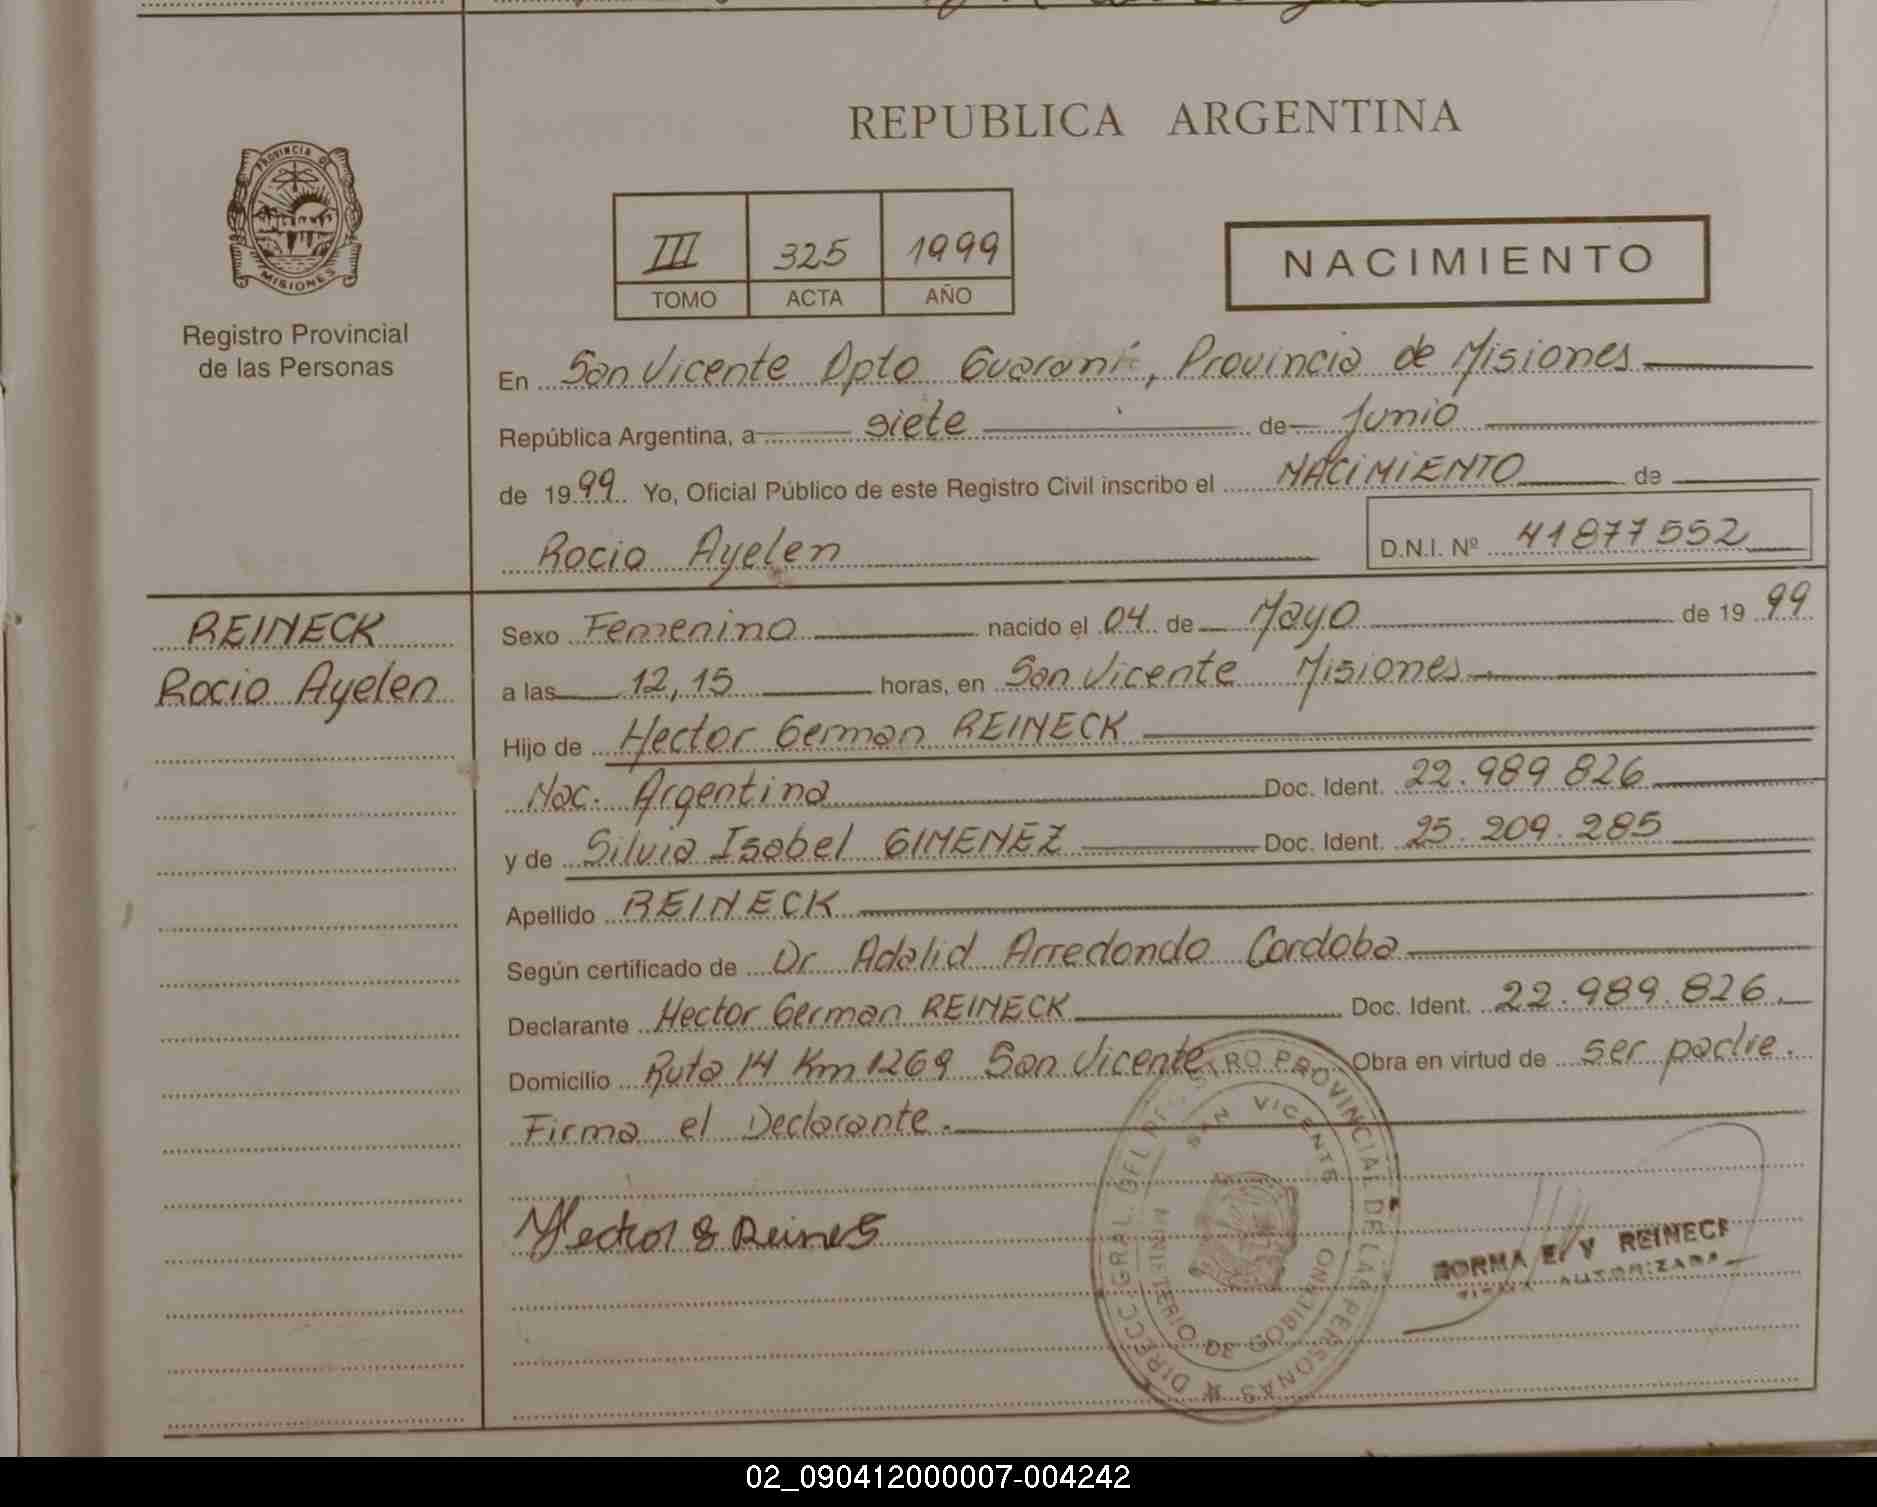 REPUBLICA ARGENTINA
PROVINCIA DE
MISIONES
Registro Provincial
de las Personas
III 325 1999
TOMO ACTA AÑO
NACIMIENTO
En San Vicente Dpto Guarani, Provincia de Misiones
República Argentina, a siete de Junio
de 1999 Yo, Oficial Público de este Registro Civil inscribo el NACIMIENTO de
Rocio Ayelen D.N.I. Nº 41877552
REINECK
Rocio Ayelen
Sexo Femenino nacido el 04 de Mayo de 1999
a las 12,15 horas, en San Vicente Misiones
Hijo de Hector German REINECK
Nac. Argentina Doc. Ident. 22.989.826
y de Silvia Isabel GIMENEZ Doc. Ident. 25.209.285
Apellido REINECK
Según certificado de Dr Adalid Arredondo Cordoba
Declarante Hector German REINECK Doc. Ident. 22.989.826.
Domicilio Ruta 14 Km 1269 San Vicente Obra en virtud de ser padre.
Firma el Declarante.
DIRECC. GRAL. DEL REGISTRO PROVINCIAL DE LAS PERSONAS
SAN VICENTE
MINISTERIO DE GOBIERNO
NORMA E. V REINECK
FIRMA AUTORIZADA
02_090412000007-004242